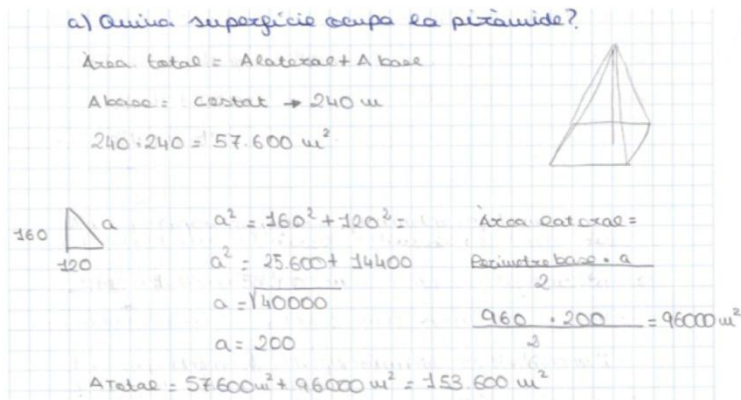 a) Quina superfície ocupa la piràmide?
Àrea total = Alateral + A base
A base = costat → 240 m
240 · 240 = 57.600 m²
160
a
120
a² = 160² + 120² =
a² = 25.600 + 14400
a = √40000
a = 200
Àrea lateral =
Perimetre base · a
2
960 · 200 = 96000 m²
2
ATotal = 57600 m² + 96000 m² = 153.600 m²